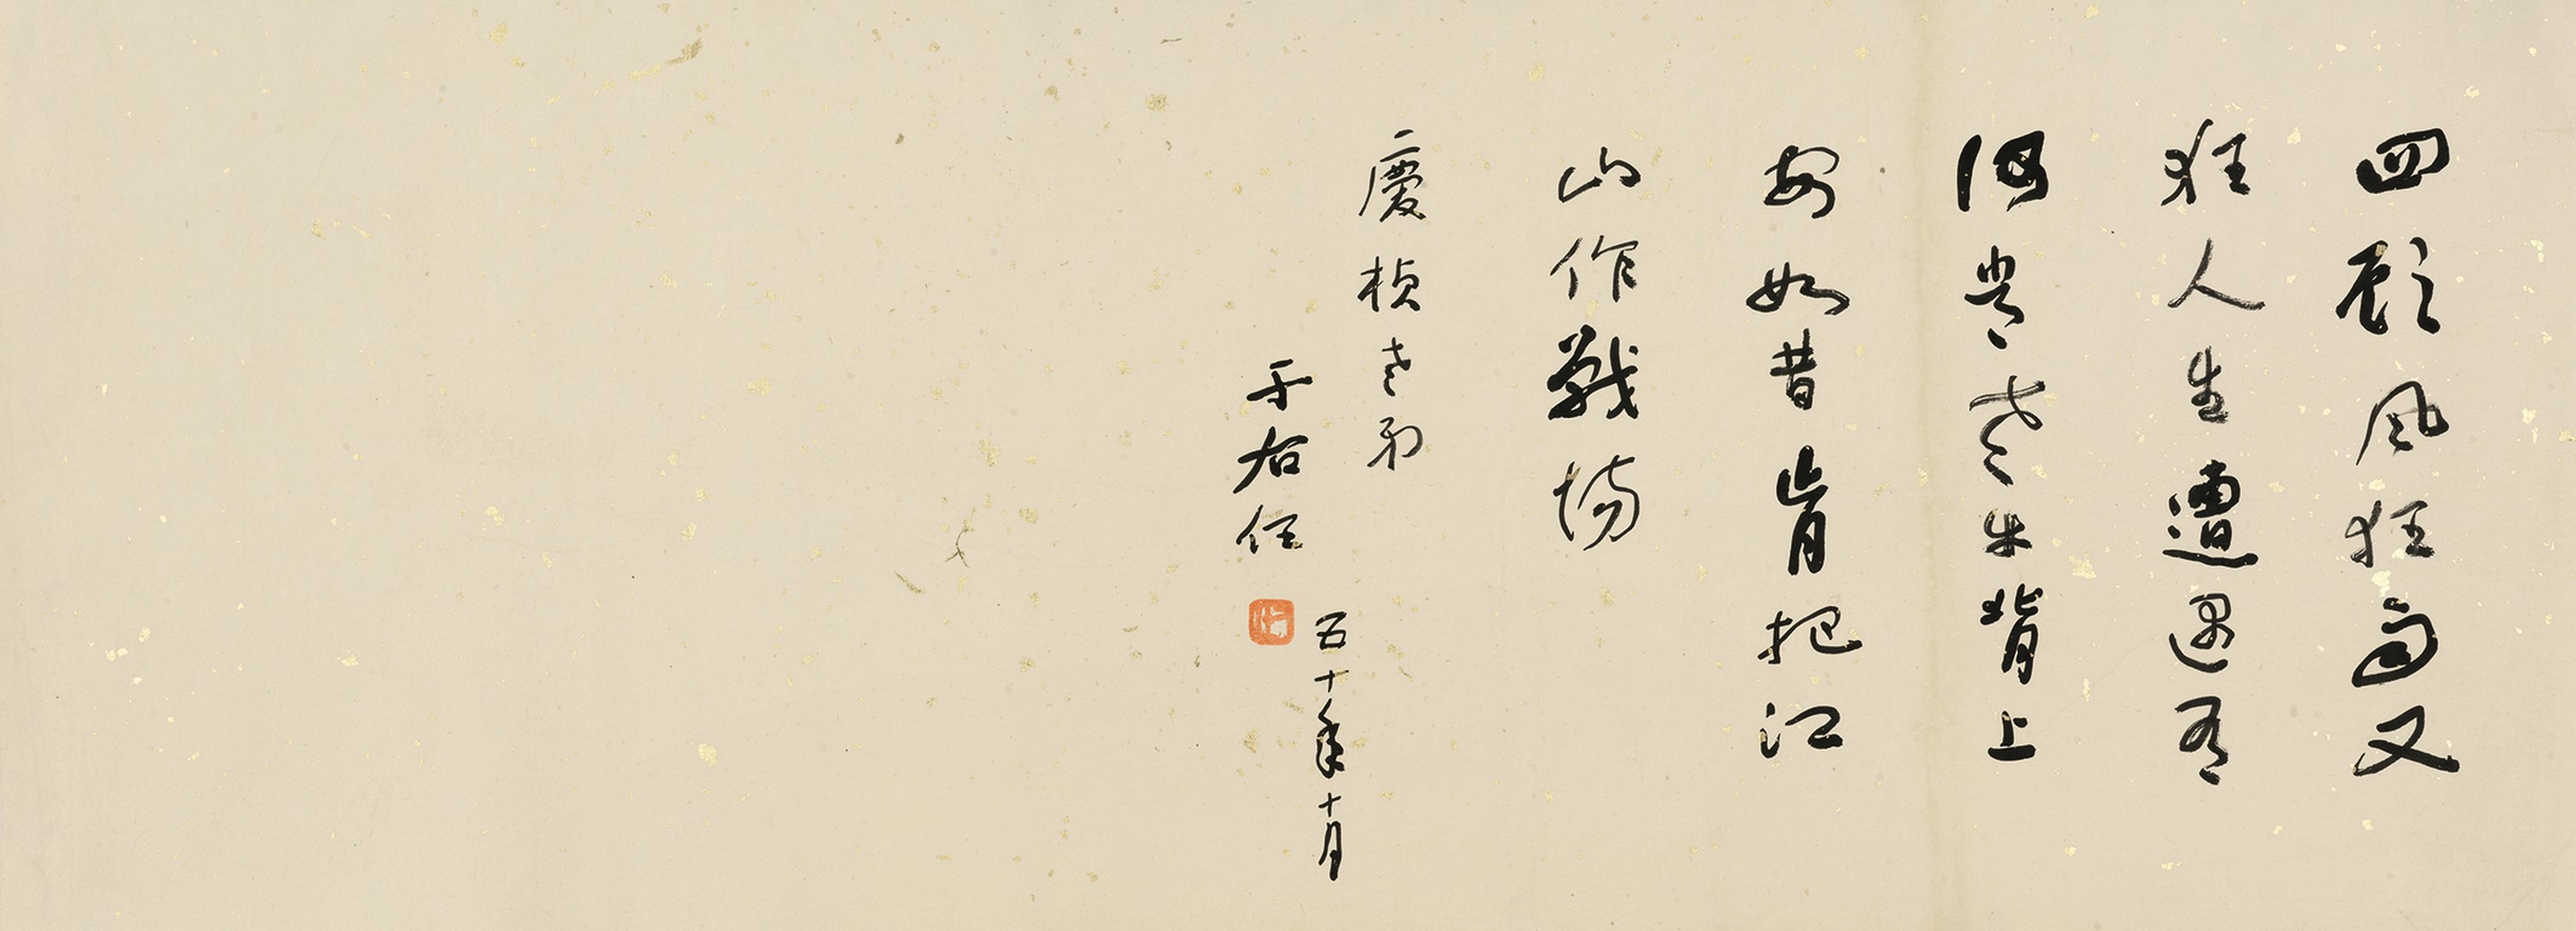 四顧風狂雨又
狂人生遭遇有
何常老牛背上
安如昔肯把江
山作戰場
慶楨老弟
五十年十月
于右任